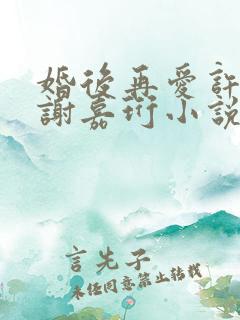 婚後再愛許
謝嘉珩小説
言先子
未经同意禁止转载